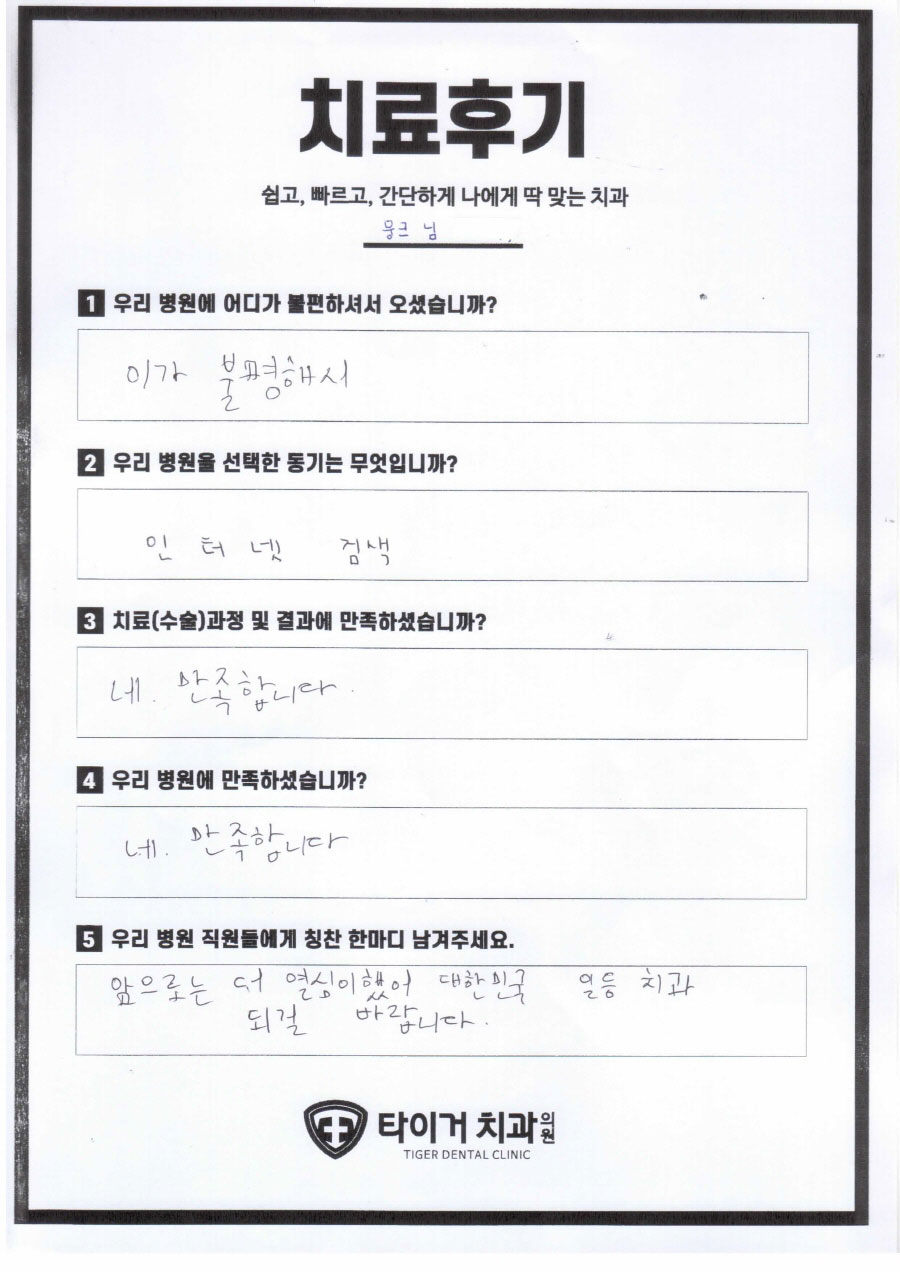 치료후기
쉽고, 빠르고, 간단하게 나에게 딱 맞는 치과
뭉크 님
1 우리 병원에 어디가 불편하셔서 오셨습니까?
이가 불평해서
2 우리 병원을 선택한 동기는 무엇입니까?
인터넷 검색
3 치료(수술)과정 및 결과에 만족하셨습니까?
네. 만족합니다.
4 우리 병원에 만족하셨습니까?
네. 만족합니다
5 우리 병원 직원들에게 칭찬 한마디 남겨주세요.
앞으로는 더 열심이했어 대한민국 일등 치과
되걸 바랍니다.
타이거 치과의원
TIGER DENTAL CLINIC